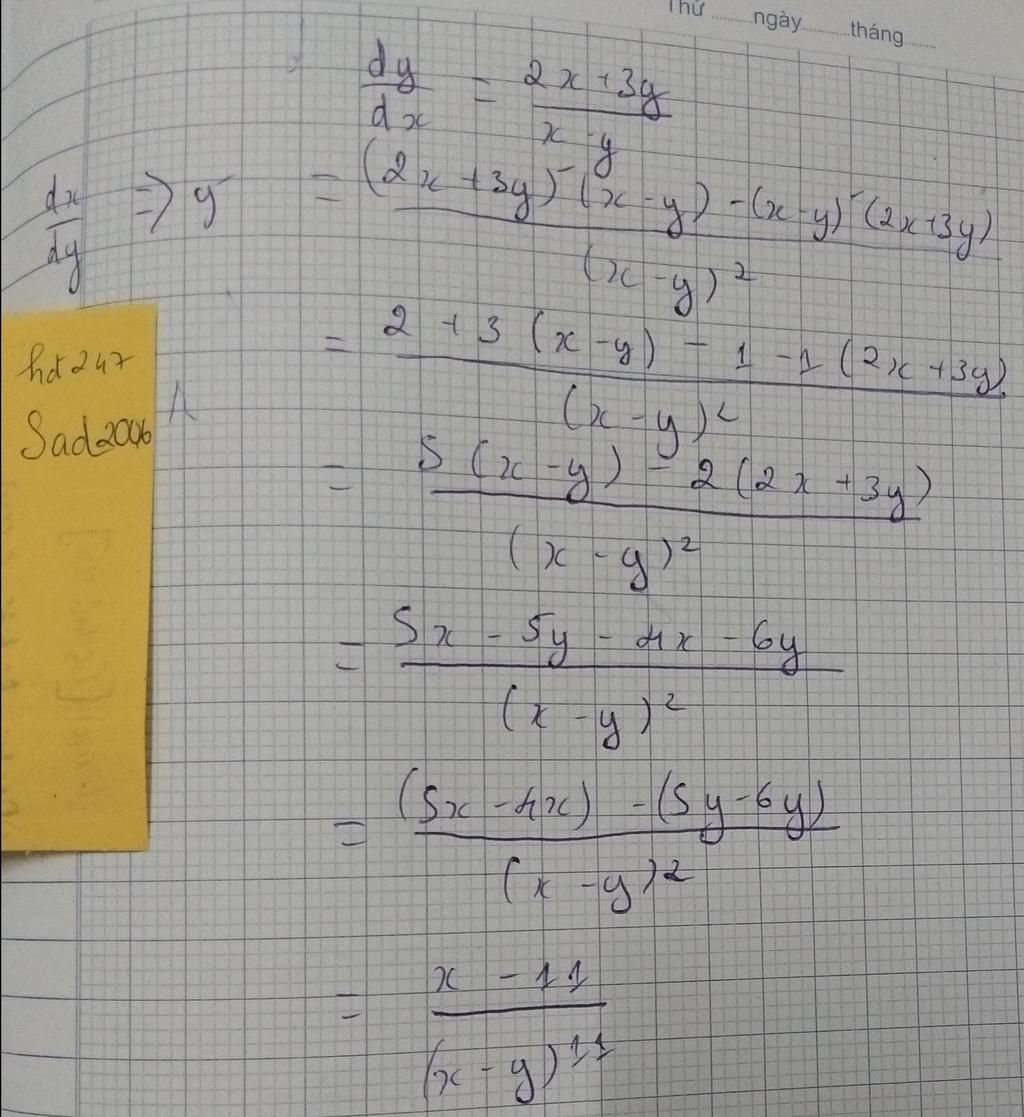 Thứ ........ ngày ........ tháng ......
dy/dx = (2x + 3y)/(x - y)
dx/dy => y' = ((2x + 3y)' (x - y) - (x - y)' (2x + 3y))/(x - y)²
= (2 + 3 (x - y) - 1 - 1 (2x + 3y))/(x - y)²
= (5 (x - y) - 2 (2x + 3y))/(x - y)²
= (5x - 5y - 4x - 6y)/(x - y)²
= ((5x - 4x) - (5y - 6y))/(x - y)²
= (x - 11)/(x - y)¹¹
hd247
Sad2006
A